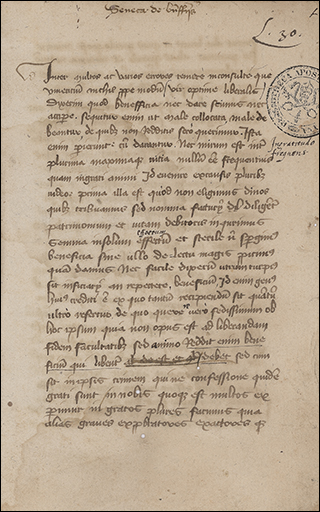 Seneca de
L. 30.
Inter multos ac varios errores temere inconsulteque
viventium nichil prope vir optime liberalis
Dixerim quod beneficia nec dare scimus nec
accipere. sequitur enim ut male collocata male de
beantur de quibus non redditis sero querimur. Ista
enim perierunt cum darentur. Nec mirum est inter
plurima maximaque vitia nullum esse frequentius
quam ingrati animi Id evenire ex causis pluribus
video prima illa est quod non eligimus dignos
quibus tribuamus sed nomina facturi diligenter
patrimonium et vitam debitoris inquirimus
Semina in solum effetum et sterile non spargimus
beneficia sine ullo delectu magis proicimus
quam damus Nec facile dixerim utrum turpius
sit infitiari an repetere beneficium Id enim genus
huius crediti est ex quo tantum recipiendum sit quantum
ultro refertur de quo queri vero fedissimum ob
hoc ipsum quia non opus est ad liberandam
fidem facultatibus sed animo Reddit enim bene
ficium qui libenter debet sed cum
sit in ipsis crimen qui ne confessione quidem
grati sunt in nobis quoque est multos ex
perimur ingratos plures facimus quia
alias graves exprobratores exactores que
Ingratitudo
frequens